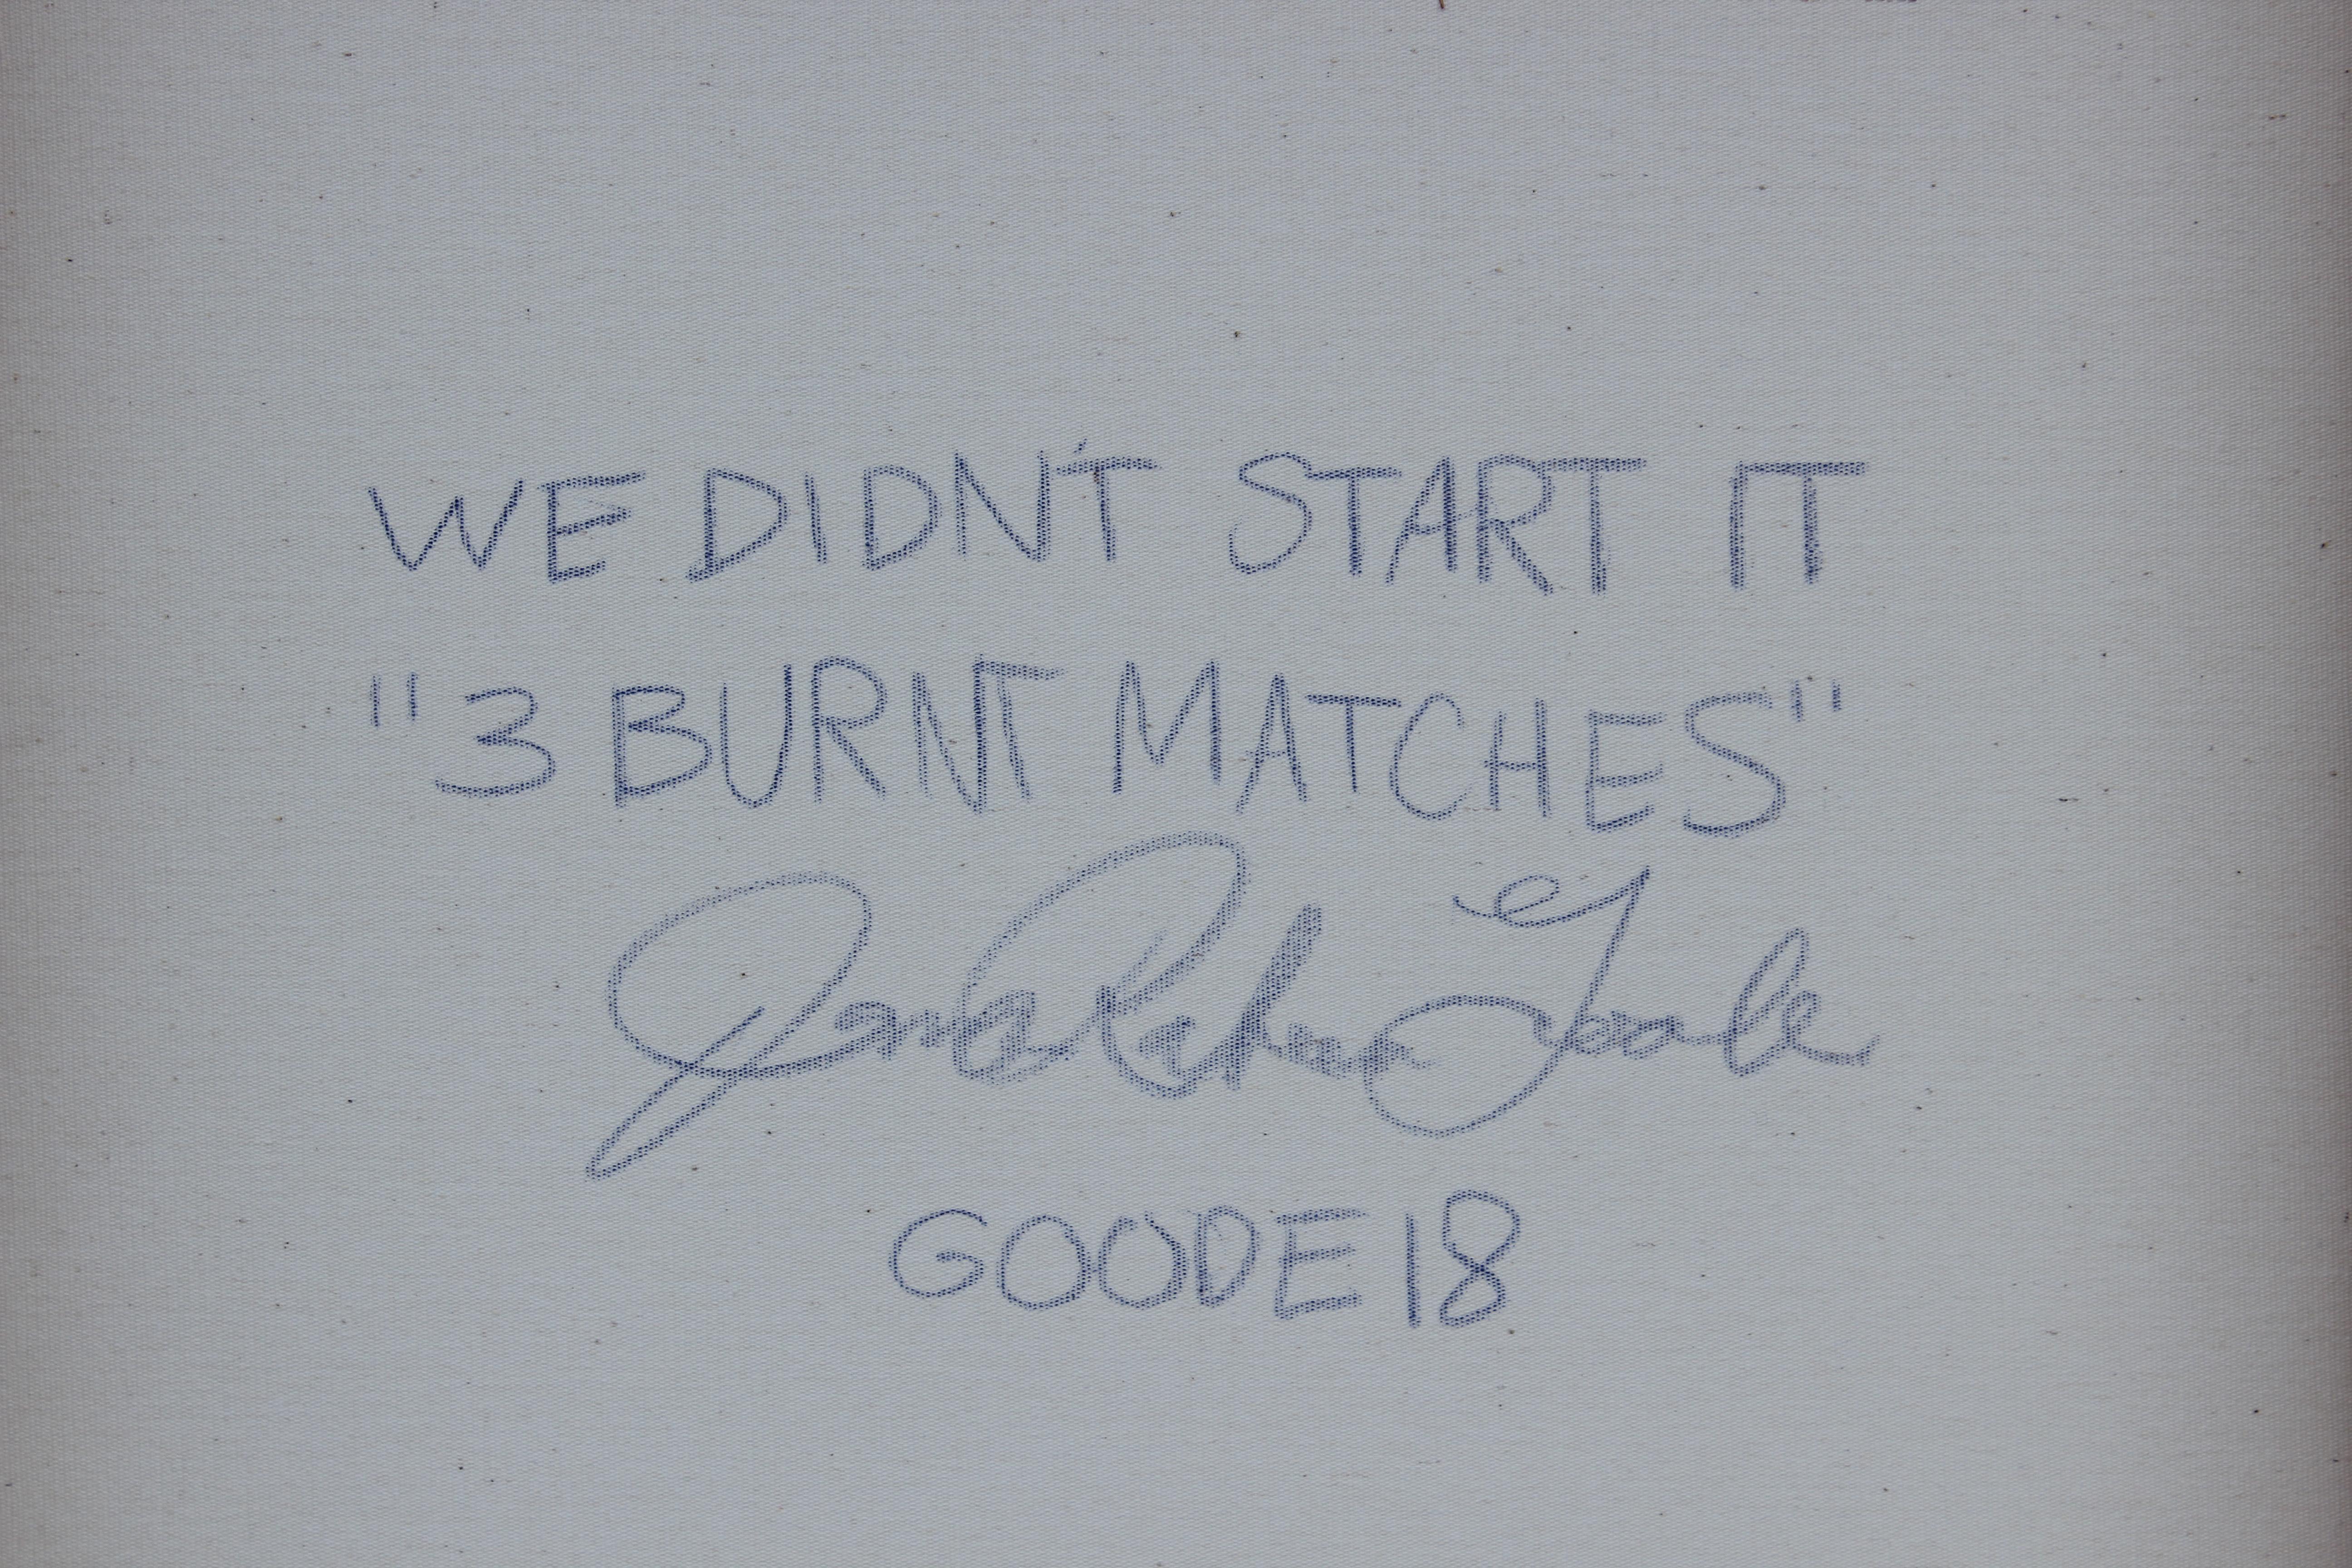 WE DIDN'T START IT
"3 BURNT MATCHES"
Goode
GOODE 18